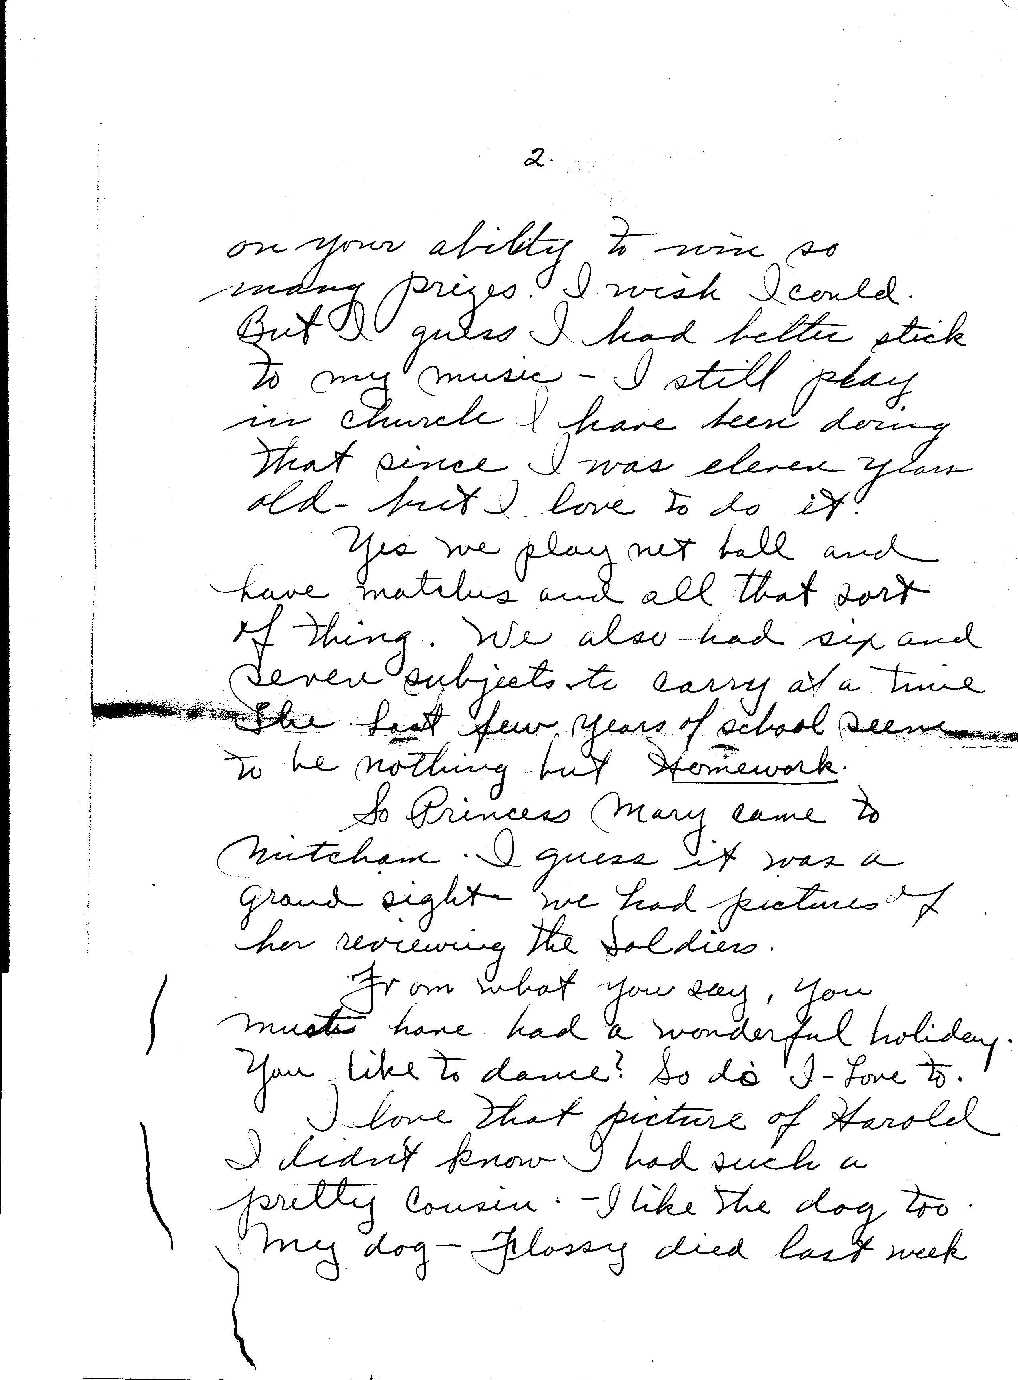 2.
on your ability to win so
many prizes. I wish I could.
But I guess I had better stick
to my music - I still play
in church I have been doing
that since I was eleven years
old - but I love to do it.
Yes we play net ball and
have matches and all that sort
of thing. We also had six and
seven subjects to carry at a time
The last few years of school seem
to be nothing but Homework.
So Princess Mary came to
Mitcham. I guess it was a
grand sight - we had pictures of
her reviewing the Soldiers.
From what you say, you
must have had a wonderful holiday.
You like to dance? So do I - Love to.
I love that picture of Harold
I didn't know I had such a
pretty cousin. - I like the dog too.
My dog - Flossy died last week